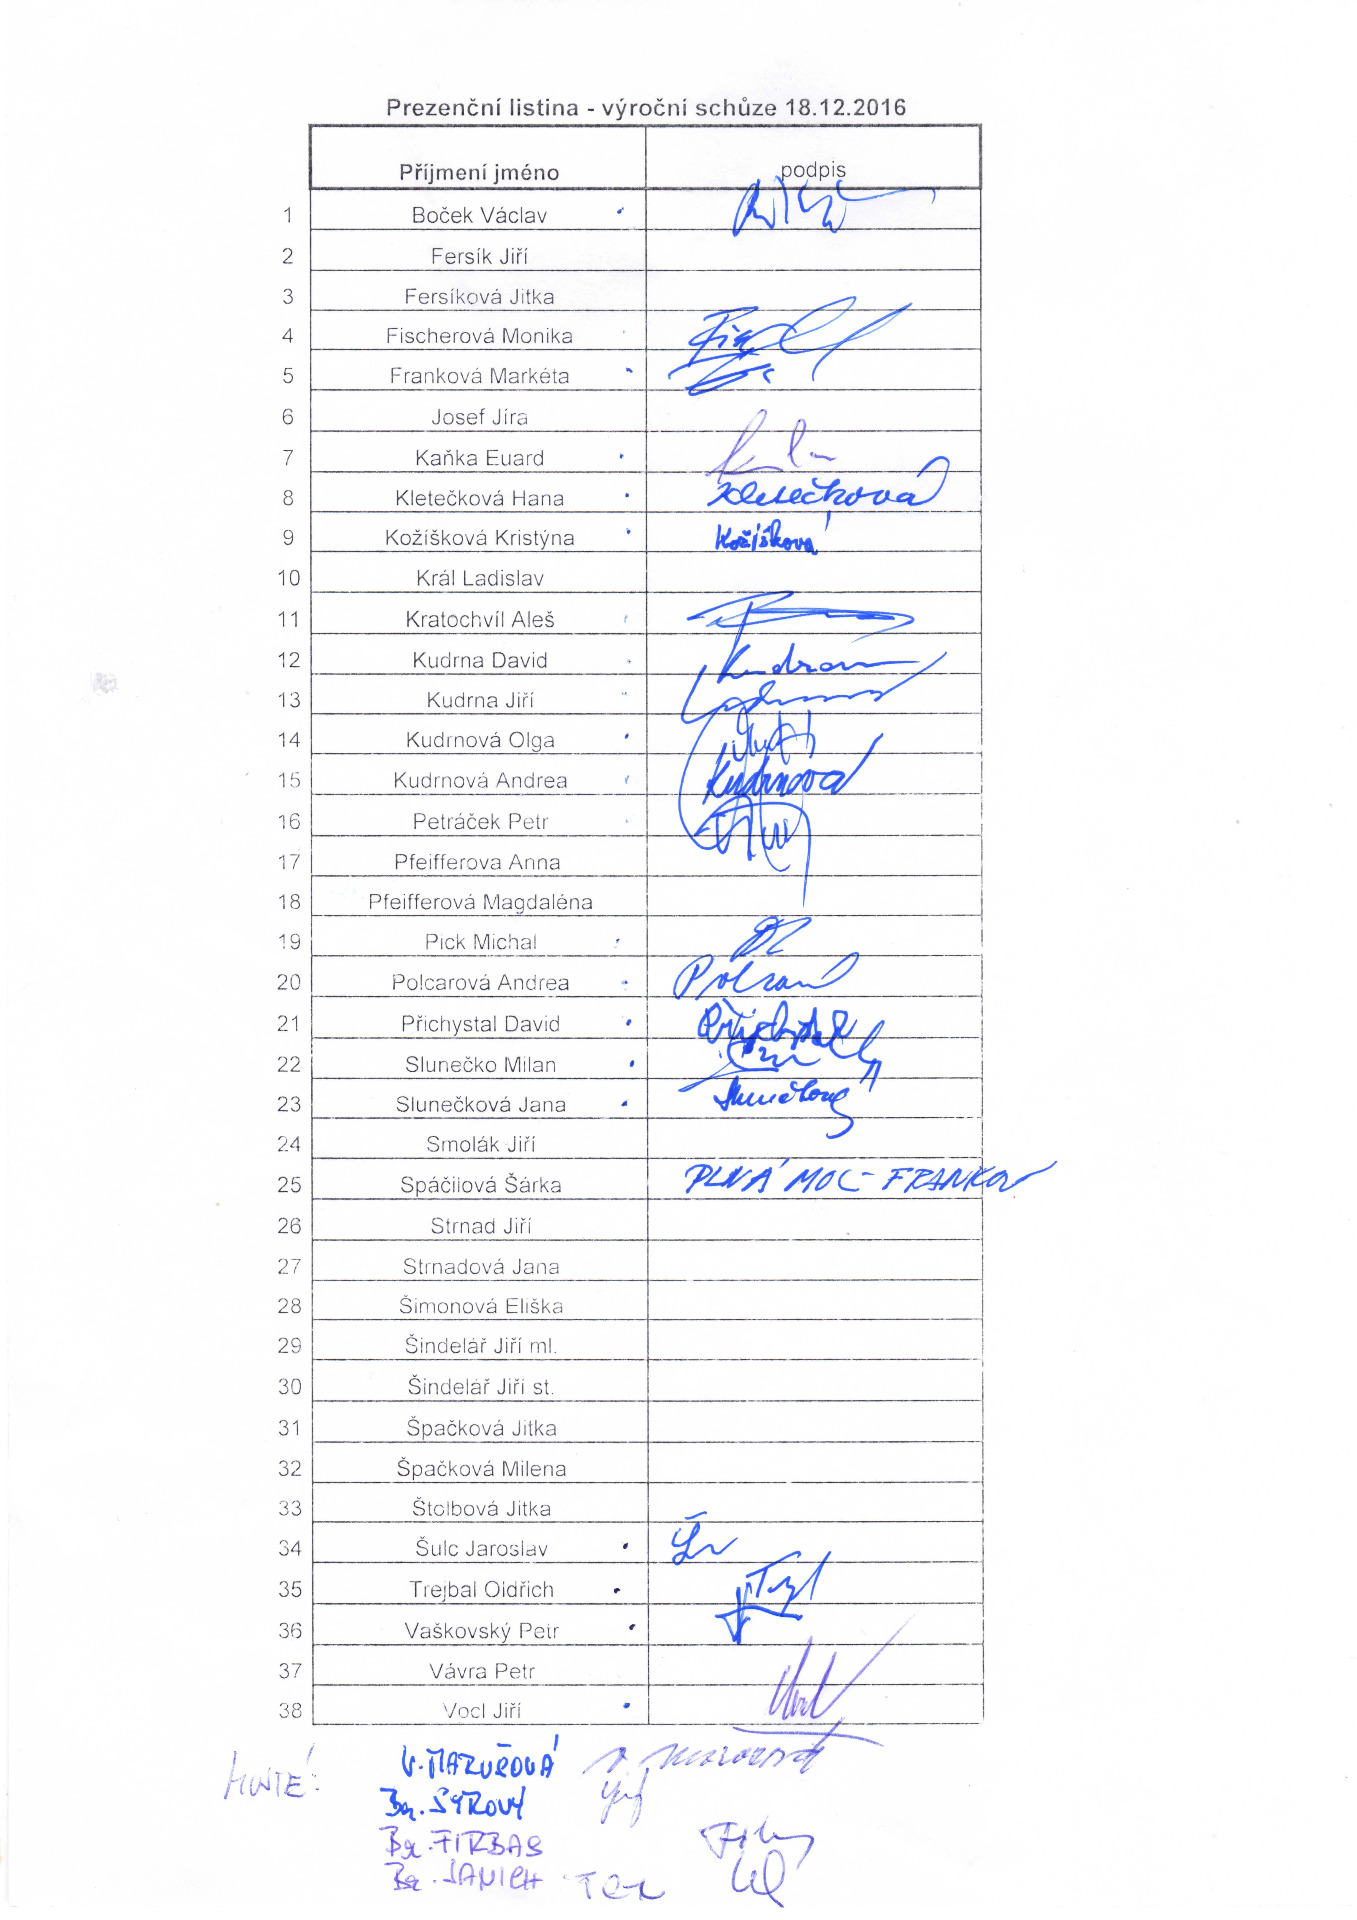 Prezenční listina - výroční schůze 18.12.2016
Příjmení jméno podpis
1 Boček Václav
2 Fersík Jiří
3 Fersíková Jitka
4 Fischerová Monika
5 Franková Markéta
6 Josef Jíra
7 Kaňka Euard
8 Kletečková Hana Kletečková
9 Kožíšková Kristýna Kožíšková
10 Král Ladislav
11 Kratochvíl Aleš
12 Kudrna David
13 Kudrna Jiří
14 Kudrnová Olga
15 Kudrnová Andrea Kudrnová
16 Petráček Petr
17 Pfeifferova Anna
18 Pfeifferová Magdaléna
19 Pick Michal
20 Polcarová Andrea
21 Přichystal David Přichystal
22 Slunečko Milan
23 Slunečková Jana
24 Smolák Jiří
25 Spáčilová Šárka PLNÁ MOC - FRANKOV
26 Strnad Jiří
27 Strnadová Jana
28 Šimonová Eliška
29 Šindelář Jiří ml.
30 Šindelář Jiří st.
31 Špačková Jitka
32 Špačková Milena
33 Štolbová Jitka
34 Šulc Jaroslav
35 Trejbal Oldřich
36 Vaškovský Petr
37 Vávra Petr
38 Vocl Jiří
HOSTÉ: V. MAZUROVÁ
Bc. SYROVÝ
Bc. FIRBAS
Bc. JANICH